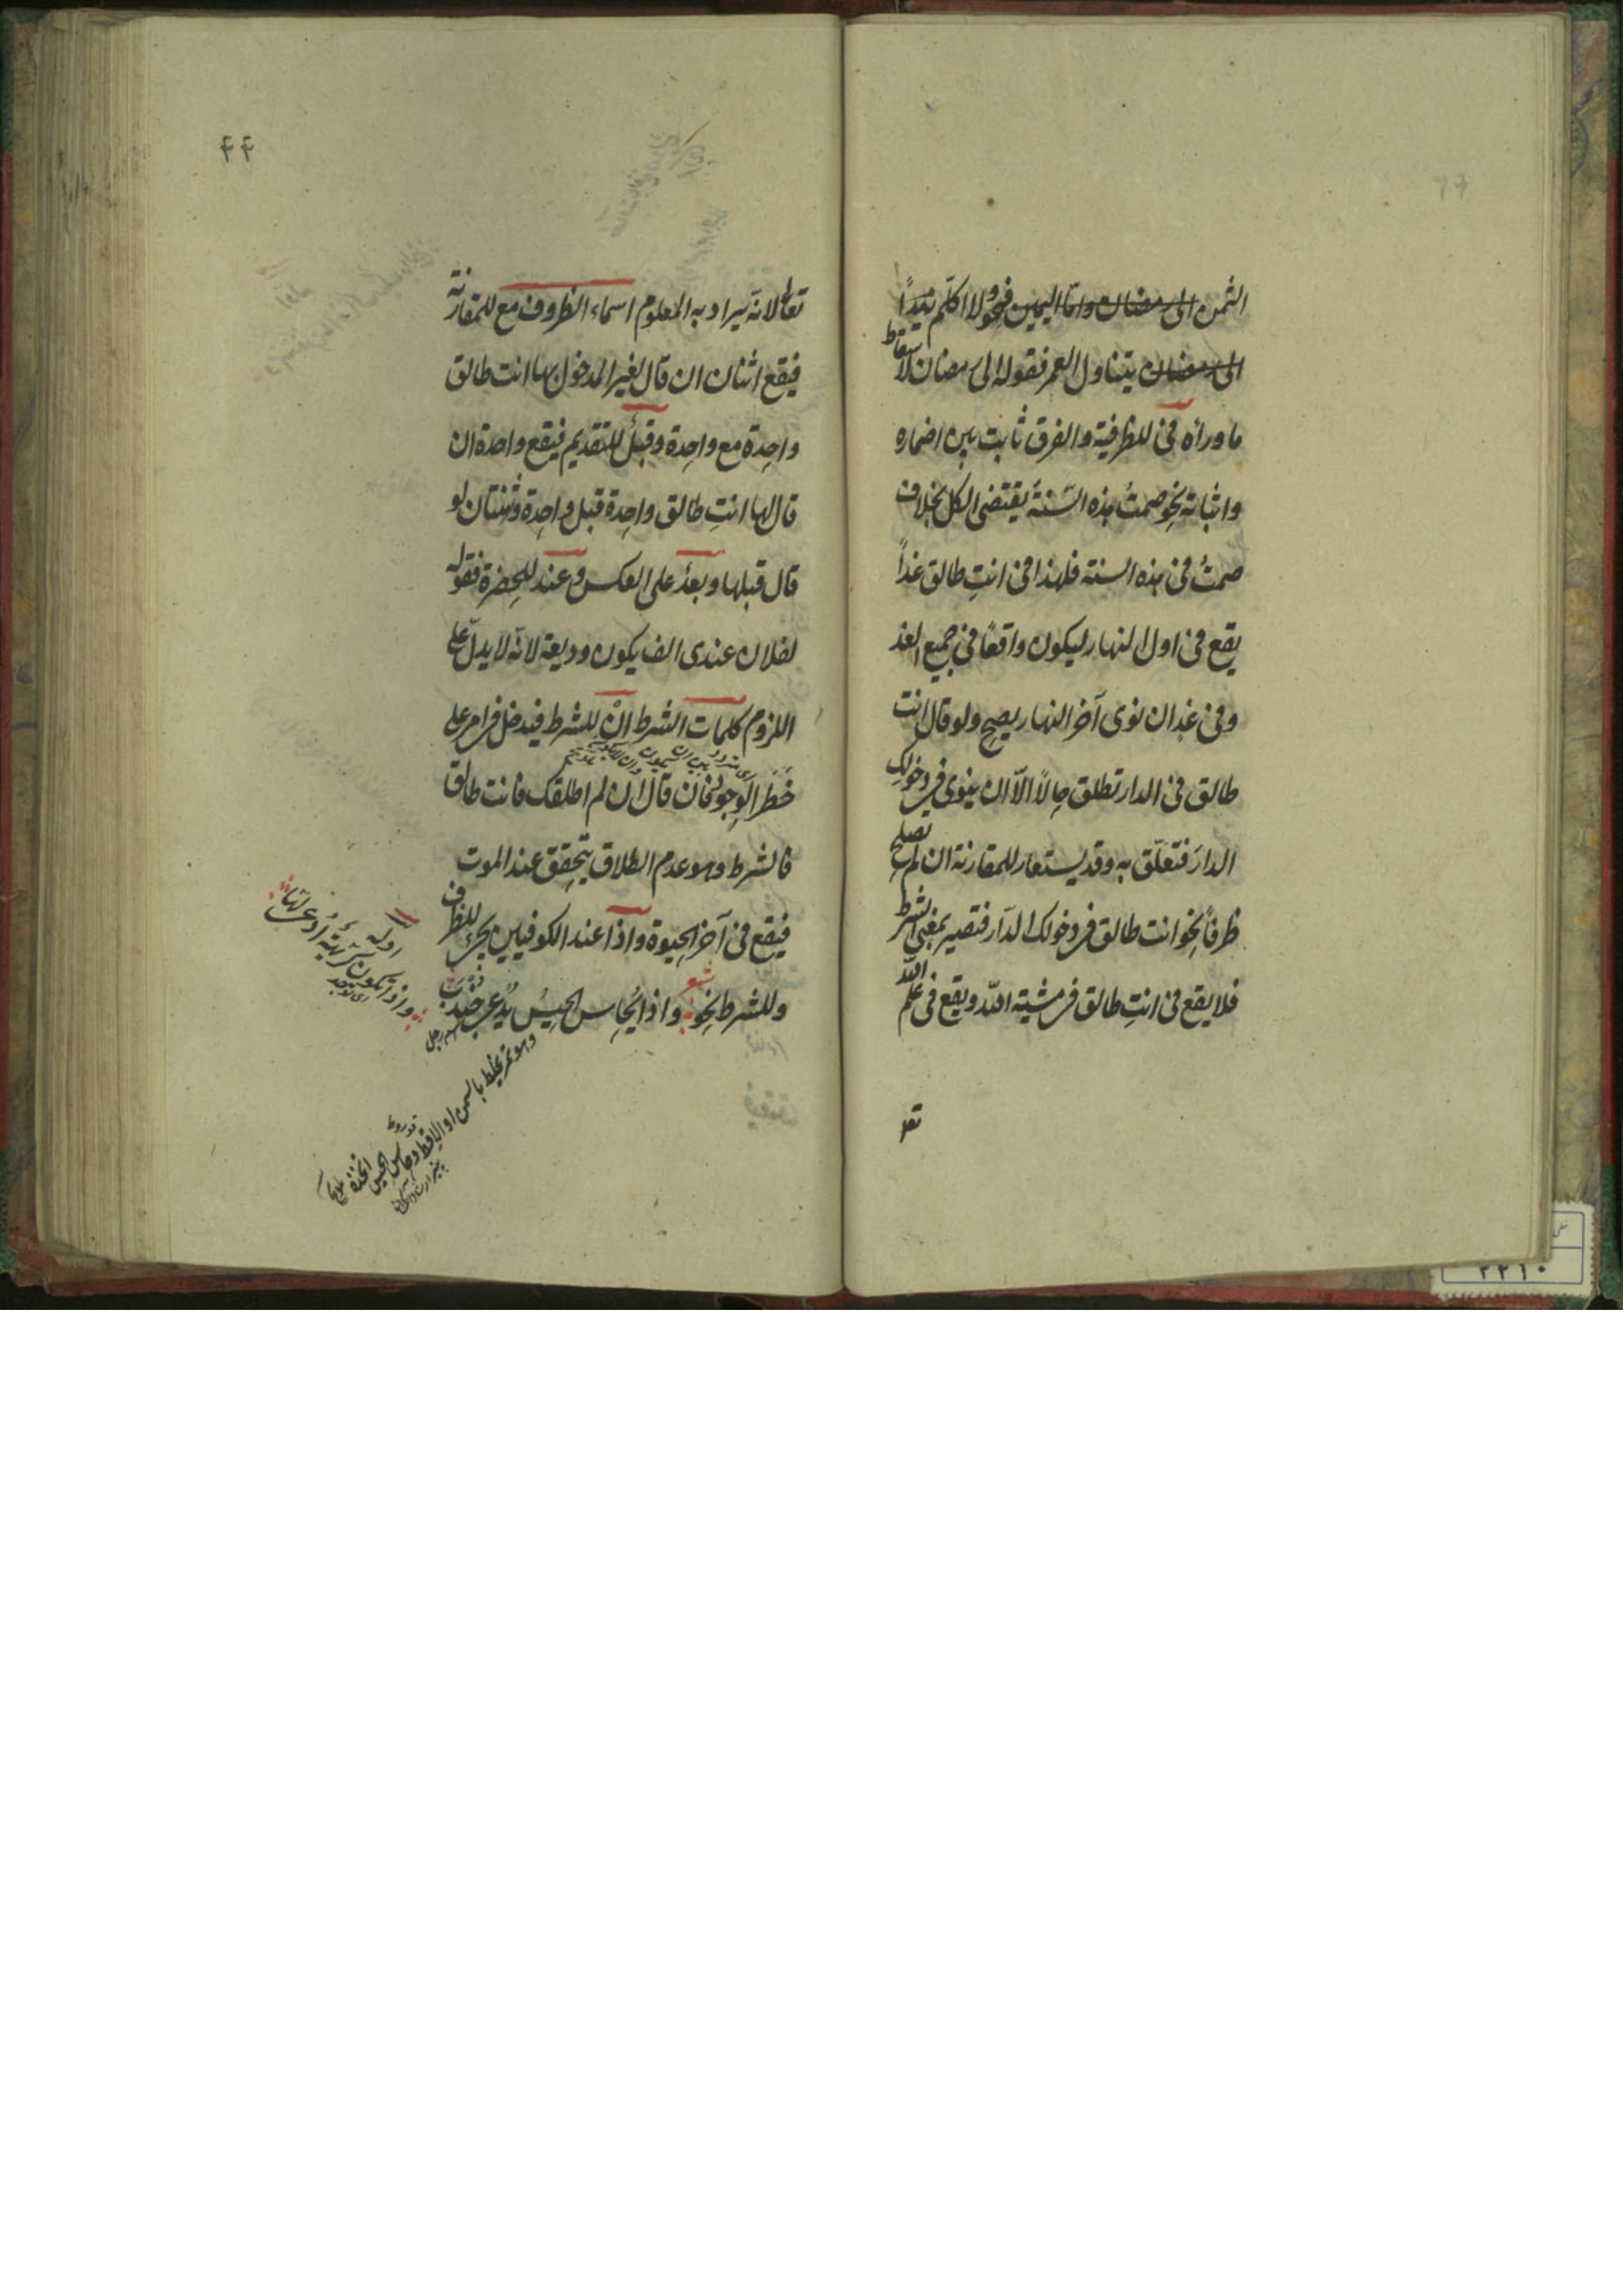 الثمن الى رمضان واما اليمين فنحو لا اكلّم زيداً
الى رمضان يتناول العمر فقوله الى رمضان لاسقاط
ما وراءه فى للظرفية والفرق ثابت بين اضماره
واثباته نحو صمتُ هذه السّنة يقتضى الكل بخلاف
صمتُ فى هذه السنة فلهذا فى انتِ طالق غداً
يقع فى اول النهار ليكون واقعًا فى جميع الغد
وفى غدٍ ان نوى آخر النهار يصح ولو قال انت
طالق فى الدار تطلق حالاً الّا ان ينوى فى دخولك
الدارَ فتعلّق به وقد يستعار للمقارنة ان لم يصلح
ظرفاً نحو انت طالق فى دخولك الدّار فتصير بمعنى الشرط
فلا يقع فى انتِ طالق فى مشية الله ويقع فى علم الله
تعا
٤٤
تعالى لانّه يراد به المعلوم اسماء الظروف مع للمقارنة
فيقع اثنان ان قال لغير المدخول بها انت طالق
واحِدة مع واحِدة وقبلُ للتقديم فيقع واحدة ان
قال لها انتِ طالق واحِدة قبل واحِدة وثنتان لو
قال قبلها وبعدُ على العكس وعند للحِضرة فقوله
لفلان عندى الف يكون وديعة لانّه لا يدلّ على
اللزوم كلمات الشرط انْ للشرط فيدخل فى امر على
خَطَر الوجود فان قال ان لم اطلقك فانت طالق
فالشرط وهو عدم الطلاق يتحقق عند الموت
فيقع فى آخر الحيوة واذا عند الكوفيين يجئ للظرف
وللشرط نحو شعر واذا يُحاس الحيسُ يُدعى جندب
اوله
واذا تكون كريهة اُدعى لها
وهو تمر يخلط بالسمن والاقط وحاس الحيس اتخذه
٢٢١٠